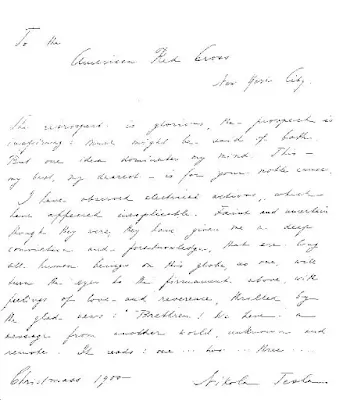 To the
American Red Cross
New York City.
The retrospect is glorious, the prospect is
inspiring: Much might be said of both.
But one idea dominates my mind. This —
my best, my dearest — is for your noble cause.
I have observed electrical actions, which
have appeared inexplicable. Faint and uncertain
though they were, they have given me a deep
conviction and foreknowledge, that ere long
all human beings on this globe, as one, will
turn their eyes to the firmament above, with
feelings of love and reverence, thrilled by
the glad news: "Brethren! We have a
message from another world, unknown and
remote. It reads: one... two... three..."
Christmas 1900
Nikola Tesla